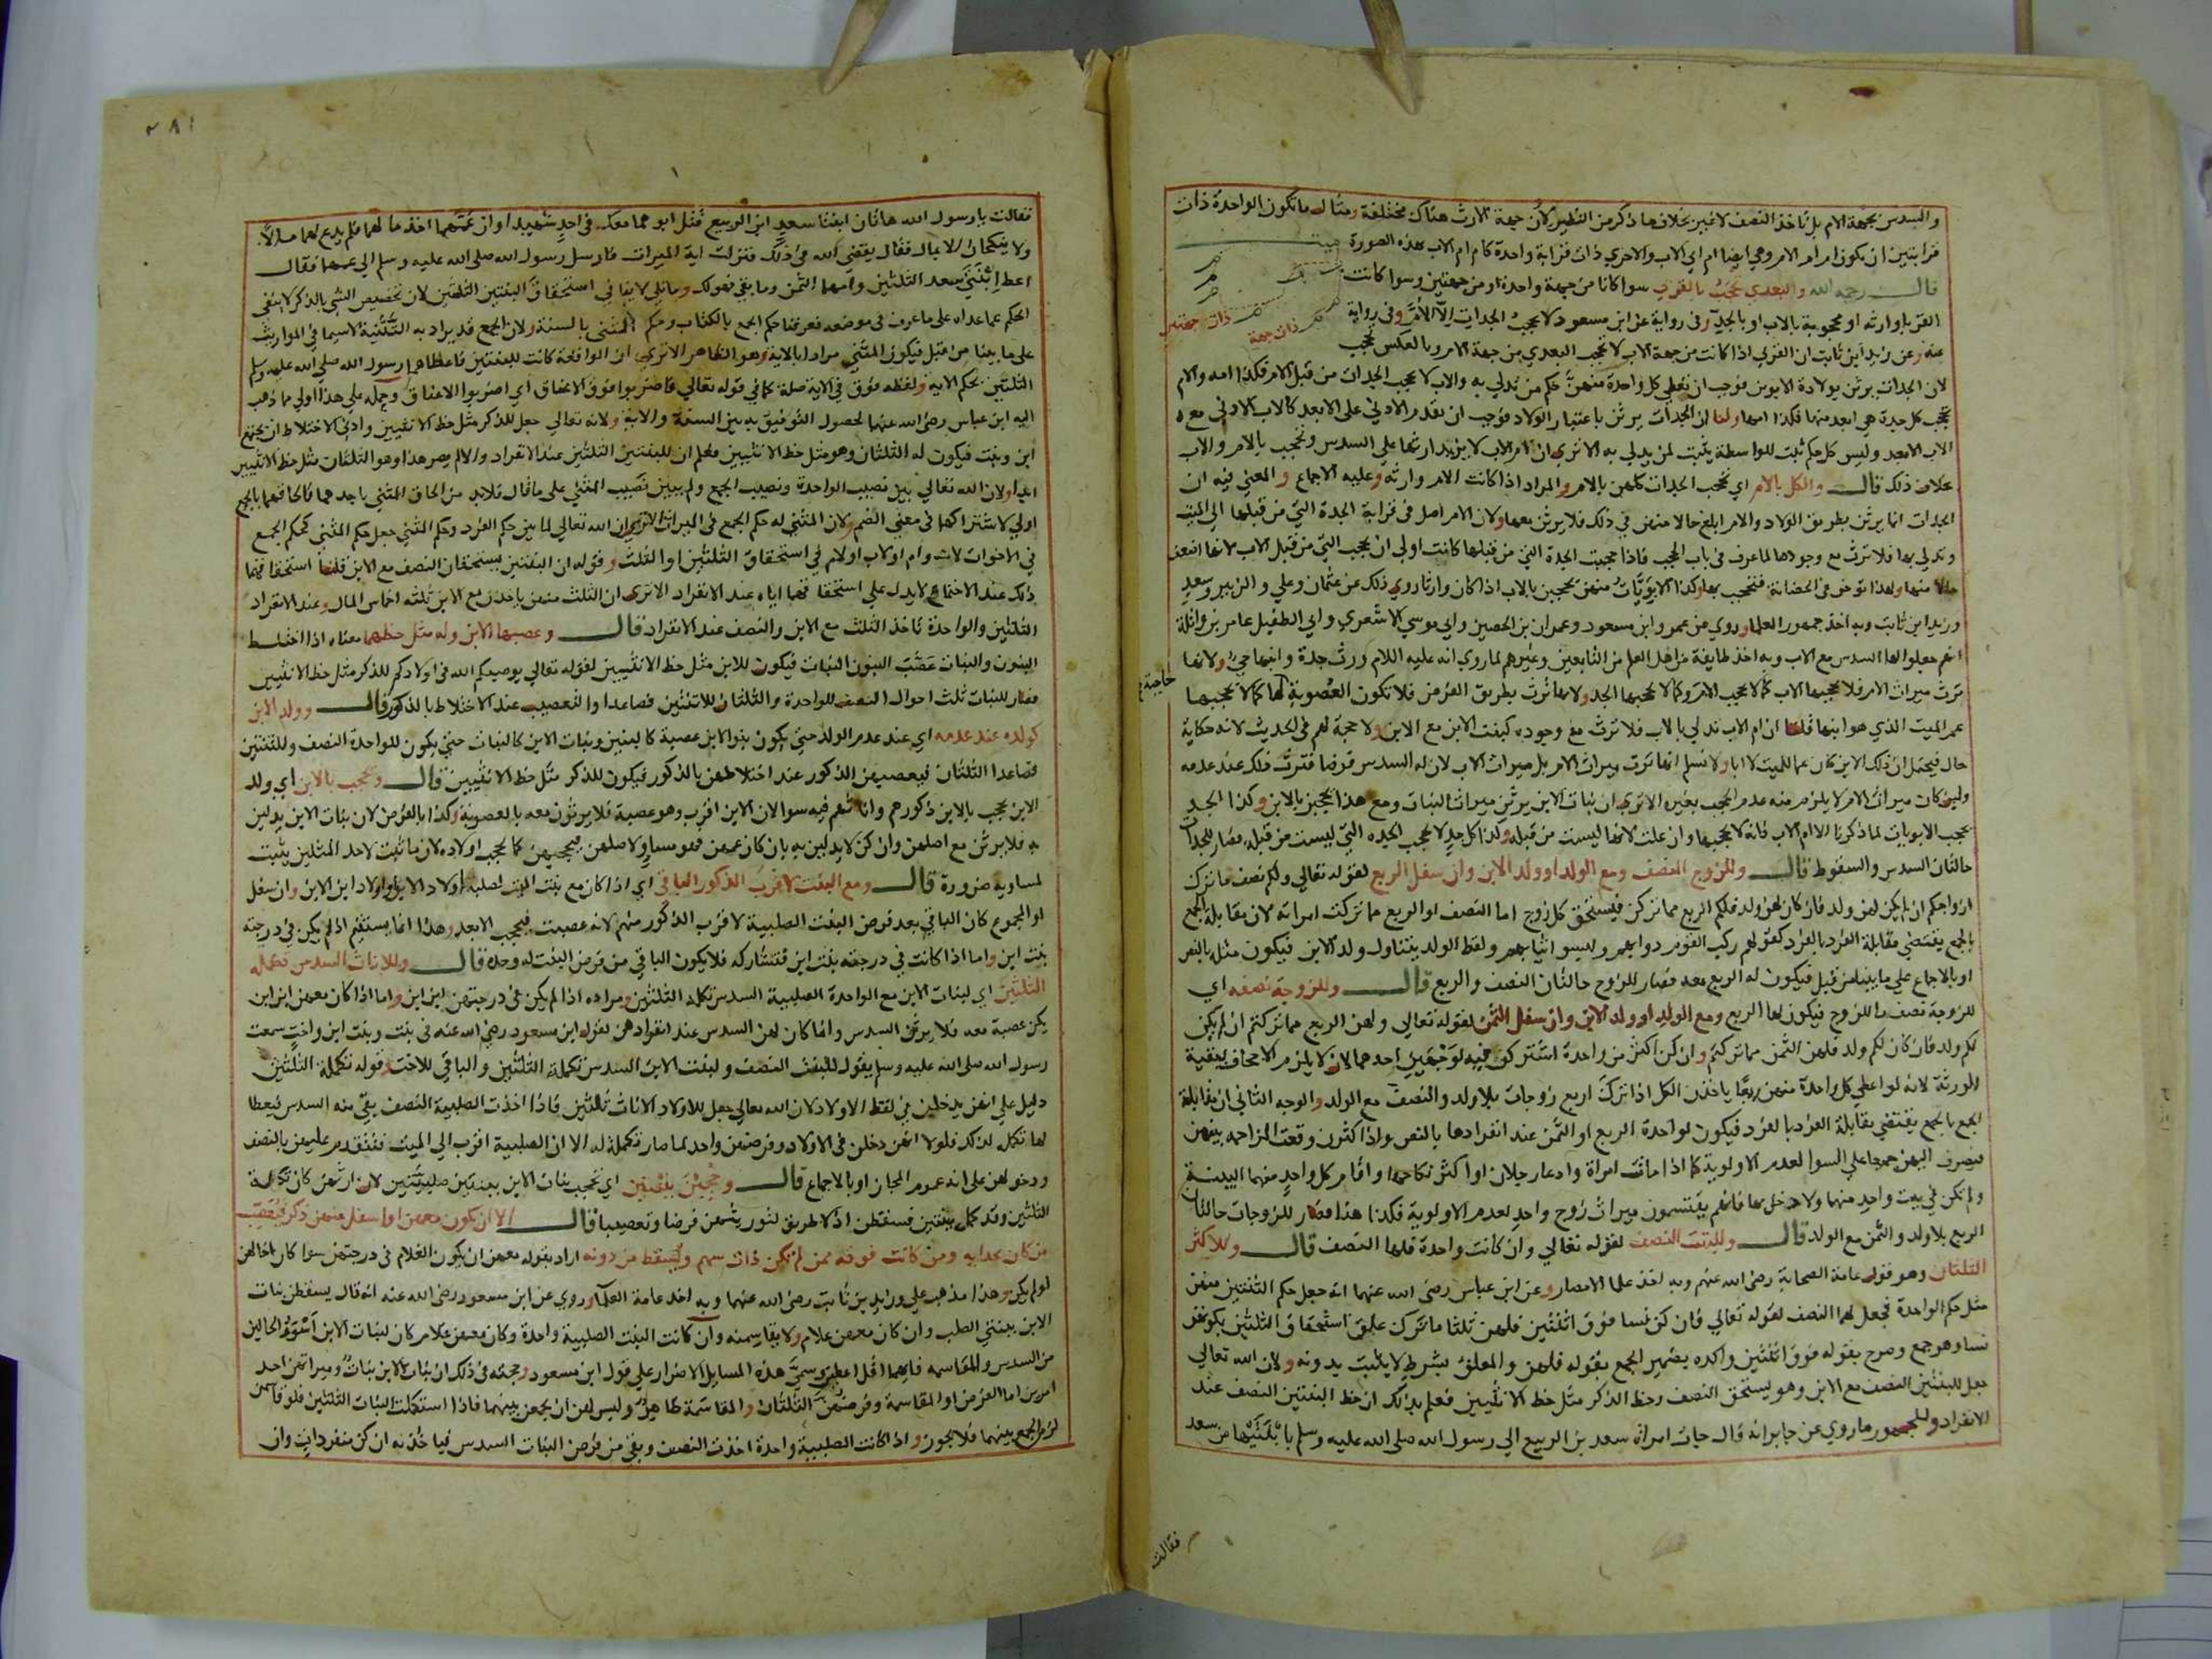 والسدس بجهة الام بل تاخذ النصف لا غير بخلاف ما ذكر من النظير لان جهة الارث هناك مختلفة ومثال ما تكون الواحدة ذات
قرابتين ان يكون ام ام الام وهي ايضا ام اب الاب والاخري ذات قرابة واحدة كام ام الاب بهذه الصورة ميت
قال رحمه الله والبعدي تحجب بالقربي سوا كانا من جهة واحدة او من جهتين وسوا كانت
القربي وارثة او محجوبة بالاب او بالجد وفي رواية عن ابن مسعود لا يحجب الجدات الا الام وفي رواية
ذات جهة
ذات جهتين
عنه وعن زيد ابن ثابت ان القربي اذا كانت من جهة الاب لا تحجب البعدي من جهة الام وبالعكس تحجب
لان الجدات يرثن بولادة الابوين فوجب ان يعطي كل واحدة منهن حكم من تدلي به والاب لا يحجب الجدات من قبل الام فكذا امه والام
تحجب كل جدة هي ابعد منها فكذا امها ولنا ان الجدات يرثن باعتبار الولاد فوجب ان يقدم الادني علي الابعد كالاب الادني مع
الاب الابعد وليس كل حكم ثبت للواسطة يثبت لمن يدلي به الا تري ان ام الاب لا يزيد ارثها علي السدس وتحجب بالام والاب
بخلاف ذلك قال والكل بالام اي تحجب الجدات كلهن بالام والمراد اذا كانت الام وارثة وعليه الاجماع والمعني فيه ان
الجدات انما يرثن بطريق الولاد والام ابلغ حالا منهن في ذلك فلا يرثن معها ولان الام اصل في قرابة الجدة التي من قبلها الي الميت
وتدلي بها فلا ترث مع وجودها لما عرف في باب الحجب فاذا حجبت الجدة التي من قبلها كانت اولي ان تحجب التي من قبل الاب لانها اضعف
حالا منها ولهذا تؤخر في الحضانة فتحجب بها وكذا الابويات منهن يحجبن بالاب اذا كان وارثا روي ذلك عن عثمان وعلي والزبير وسعد
وزيد ابن ثابت وبه اخذ جمهور العلما وروي عن عمر وابن مسعود وعمران بن الحصين وابي موسي الاشعري وابي الطفيل عامر بن واثلة
انهم جعلوا لها السدس مع الاب وبه اخذ طايفة من اهل العلم من التابعين وغيرهم لما روي انه عليه السلام ورث جدة وابنها حي ولانها
ترث ميراث الام فلا يحجبها الاب كما لا يحجب الام وكما لا يحجبها الجد ولانها ترث بطريق الفرض فلا تكون العصوبة حاجبة لها كما لا يحجبها
عم الميت الذي هو ابنها قلنا ان ام الاب تدلي بالاب فلا ترث مع وجوده كبنت الابن مع الابن ولا حجة لهم في الحديث لانه حكاية
حال فيحتمل ان ذلك الابن كان عما للميت لا ابا ولا نسلم انها ترث ميراث الام بل ميراث الاب لان له السدس فرضا فترث ذلك عند عدمه
ولين كان ميراث الام لا يلزم منه عدم الحجب بغيره الا تري ان بنات الابن يرثن ميراث البنات ومع هذا يحجبن بالابن وكذا الجد
يحجب الابويات لما ذكرنا الا ام الاب فانه لا يحجبها وان علت لانها ليست من قبله وكذا كل جد لا يحجب الجده التي ليست من قبله فصار للجدات
حالتان السدس والسقوط قال وللزوج النصف ومع الولد او ولد الابن وان سفل الربع لقوله تعالي ولكم نصف ما ترك
ازواجكم ان لم يكن لهن ولد فان كان لهن ولد فلكم الربع مما تركن فيستحق كل زوج اما النصف او الربع مما تركت امراته لان مقابلة الجمع
بالجمع يقتضي مقابلة الفرد بالفرد كقولهم ركب القوم دوابهم ولبسوا ثيابهم ولفظ الولد يتناول ولد الابن فيكون مثله بالنص
او بالاجماع علي ما بينا من قبل فيكون له الربع معه فصار للزوج حالتان النصف والربع قال وللزوجة نصفه اي
للزوجة نصف ما للزوج فيكون لها الربع ومع الولد او ولد الابن وان سفل الثمن لقوله تعالي ولهن الربع مما تركتم ان لم يكن
لكم ولد فان كان لكم ولد فلهن الثمن مما تركتم وان كن اكثر من واحدة اشتركن فيه لوجهين احدهما لان لا يلزم الاجحاف ببقية
الورثة لانه لو اعطي كل واحدة منهن ربعا ياخذن الكل اذا ترك اربع زوجات بلا ولد والنصف مع الولد والوجه الثاني ان مقابلة
الجمع بالجمع تقتضي مقابلة الفرد بالفرد فيكون لواحدة الربع او الثمن عند انفرادها بالنص واذا كثرن وقعت المزاحمه بينهن
فيصرف اليهن جميعا علي السوا لعدم الاولوية كما اذا ماتت امراة وادعا رجلان او اكثر نكاحها واقام كل واحد منهما البينة
ولم تكن في بيت واحد منهما ولا دخل بها فانهم يقتسمون ميراث زوج واحد لعدم الاولوية فكذا هذا فصار للزوجات حالتان
الربع بلا ولد والثمن مع الولد قال وللبنت النصف لقوله تعالي وان كانت واحدة فلها النصف قال وللاكثر
الثلثان وهو قول عامة الصحابة رضي الله عنهم وبه اخذ علما الامصار وعن ابن عباس رضي الله عنهما انه جعل حكم الثنتين منهن
مثل حكم الواحدة فجعل لهما النصف لقوله تعالي فان كن نسا فوق اثنتين فلهن ثلثا ما ترك علق استحقاق الثلثين بكونهن
نسا وهو جمع وصرح بقوله فوق اثنتين واكده بضمير الجمع بقوله فلهن والمعلق بشرط لا يثبت بدونه ولان الله تعالي
جعل للبنتين النصف مع الابن وهو يستحق النصف وحظ الذكر مثل حظ الانثيين فعلم بذلك ان حظ البنتين النصف عند
الانفراد وللجمهور ما روي عن جابر انه قال جات امراة سعد بن الربيع الي رسول الله صلي الله عليه وسلم بابنتيها من سعد
فقالت
٢٨١
فقالت يا رسول الله هاتان ابنتا سعد ابن الربيع قتل ابوهما معك في احد شهيدا وان عمهما اخذ ما لهما فلم يدع لهما مالا
ولا ينكحان الا بمال فقال يقضي الله في ذلك فنزلت اية الميراث فارسل رسول الله صلي الله عليه وسلم الي عمهما فقال
اعط ابنتي سعد الثلثين وامهما الثمن وما بقي فهو لك وما تلي لا ينافي استحقاق البنتين الثلثين لان تخصيص الشي بالذكر لا ينفي
الحكم عما عداه علي ما عرف في موضعه فعرفنا حكم الجمع بالكتاب وحكم المثني بالسنة ولان الجمع قد يراد به التثنية لاسيما في المواريث
علي ما بينا من قبل فيكون المثني مرادا بالاية وهو الظاهر الا تري ان الواقعة كانت للبنتين فاعطاهما رسول الله صلي الله عليه وسلم
الثلثين بحكم الاية ولفظه فوق في الاية صلة كما في قوله تعالي فاضربوا فوق الاعناق اي اضربوا الاعناق وحمله علي هذا اولي مما ذهب
اليه ابن عباس رضي الله عنهما لحصول التوفيق به بين السنة والاية ولانه تعالي جعل للذكر مثل حظ الانثيين وادني الاختلاط ان يجتمع
ابن وبنت فيكون له الثلثان وهو مثل حظ الانثيين فعلم ان للبنتين الثلثين عند الانفراد والا لم يصر هذا وهو الثلثان مثل حظ الانثيين
ابدا ولان الله تعالي بين نصيب الواحدة ونصيب الجمع ولم يبين نصيب المثني علي ما قال فلابد من الحاق المثني باحدهما فالحاقهما بالجمع
اولي لاشتراكهما في معني الضم ولان المثني له حكم الجمع في الميراث الا تري ان الله تعالي لما بين حكم الفرد وحكم المثني جعل حكم المثني كحكم الجمع
في الاخوات لاب وام او لاب او لام في استحقاق الثلثين او الثلث وقوله ان البنتين يستحقان النصف مع الابن قلنا استحقاقهما
ذلك عند الاجتماع لا يدل علي استحقاقهما اياه عند الانفراد الا تري ان الثلث منهن ياخذن مع الابن ثلثة اخماس المال وعند الانفراد
الثلثين والواحدة تاخذ الثلث مع الابن والنصف عند الانفراد قال وعصبها الابن وله مثل حظهما معناه اذا اختلط
البنون والبنات عصب البنون البنات فيكون للابن مثل حظ الانثيين لقوله تعالي يوصيكم الله في اولادكم للذكر مثل حظ الانثيين
فصار للبنات ثلث احوال النصف للواحدة والثلثان للاثنتين فصاعدا والتعصيب عند الاختلاط بالذكور قال وولد الابن
كولده عند عدمه اي عند عدم الولد حتي يكون بنو الابن عصبة كالبنين وبنات الابن كالبنات حتي يكون للواحدة النصف وللثنتين
فصاعدا الثلثان فيعصبهن الذكور عند اختلاطهن بالذكور فيكون للذكر مثل حظ الانثيين قال ويحجب بالابن اي ولد
الابن يحجب بالابن ذكورهم واناثهم فيه سوا لان الابن اقرب وهو عصبة فلا يرثون معه بالعصوبة وكذا بالفرض لان بنات الابن يدلين
به فلا يرثن مع اصلهن وان كن لا يدلين به بان كان عمهن فهو مساو لاصلهن فيحجبهن كما يحجب اولاده لان ما ثبت لاحد المثلين يثبت
لمساويه ضرورة قال ومع البنت لاقرب الذكور الباقي اي اذا كان مع بنت الميت لصلبه اولاد الابن او اولاد ابن الابن وان سفل
او المجموع كان الباقي بعد فرض البنت الصلبية لاقرب الذكور منهم لانه عصبة فيحجب الابعد وهذا انما يستقيم اذا لم يكن في درجته
بنت ابن واما اذا كانت في درجته بنت ابن فتشاركه فلا يكون الباقي من فرض البنت له وحده قال وللاناث السدس تكملة
الثلثين اي لبنات الابن مع الواحدة الصلبية السدس تكملة الثلثين ومراده اذا لم يكن في درجتهن ابن ابن واما اذا كان معهن ابن ابن
يكن عصبة معه فلا يرثن السدس وانما كان لهن السدس عند انفرادهن لقول ابن مسعود رضي الله عنه في بنت وبنت ابن واخت سمعت
رسول الله صلي الله عليه وسلم يقول للبنت النصف ولبنت الابن السدس تكملة الثلثين والباقي للاخت وقوله تكملة الثلثين
دليل علي انهن يدخلن في لفظ الاولاد لان الله تعالي جعل للاولاد الاناث ثلثين فاذا اخذت الصلبية النصف بقي منه السدس فيعطا
لها تكملة لذلك فلولا انهن دخلن في الاولاد وفرضهن واحد لما صار تكملة له الا ان الصلبية اقرب الي الميت فتقدم عليهن بالنصف
ودخولهن علي انه عموم المجاز او بالاجماع قال وحجبن ببنتين اي تحجب بنات الابن ببنتين صلبيتين لان ارثهن كان تكملة
الثلثين وقد كمل ببنتين فسقطن اذ لا طريق لتوريثهن فرضا وتعصيبا قال الا ان يكون معهن او اسفل منهن ذكر فيعصب
من كان بحذايه ومن كانت فوقه ممن لم تكن ذات سهم ويسقط من دونه اراد بقوله معهن ان يكون الغلام في درجتهن سوا كان اخا لهن
او لم يكن وهذا مذهب علي وزيد بن ثابت رضي الله عنهما وبه اخذ عامة العلما وروي عن ابن مسعود رضي الله عنه انه قال يسقطن بنات
الابن ببنتي الصلب وان كان معهن غلام ولا يقاسمنه وان كانت البنت الصلبية واحدة وكان معهن غلام كان لبنات الابن اسوء الحالين
من السدس والمقاسمه فايهما اقل اعطين سمي هذه المسايل الاضرار علي قول ابن مسعود وحجته في ذلك ان بنات الابن بنات وميراثهن احد
امرين اما الفرض او المقاسمة وفرضهن الثلثان والمقاسمة ظاهر وليس لهن ان يجمعن بينهما فاذا استكملت البنات الثلثين فلو قاسمن
لزم الجمع بينهما فلا يجوز واذا كانت الصلبية واحدة اخذت النصف وبقي من فرض البنات السدس فياخذنه ان كن منفردات وان